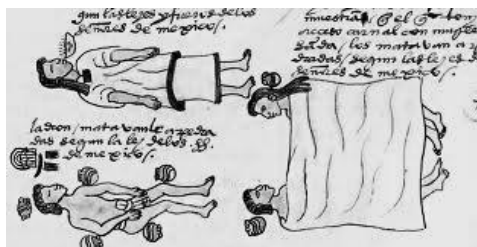 gun las leyes y fueros de los
señores de mexico.
ladron, matavanle a pedra
das segun la ley de los ss.
de mexico.
muestran, q̃ el q̃
acceso carnal con muger
sada, los matavan a p
dradas, segun las leyes d
señores de mexico.